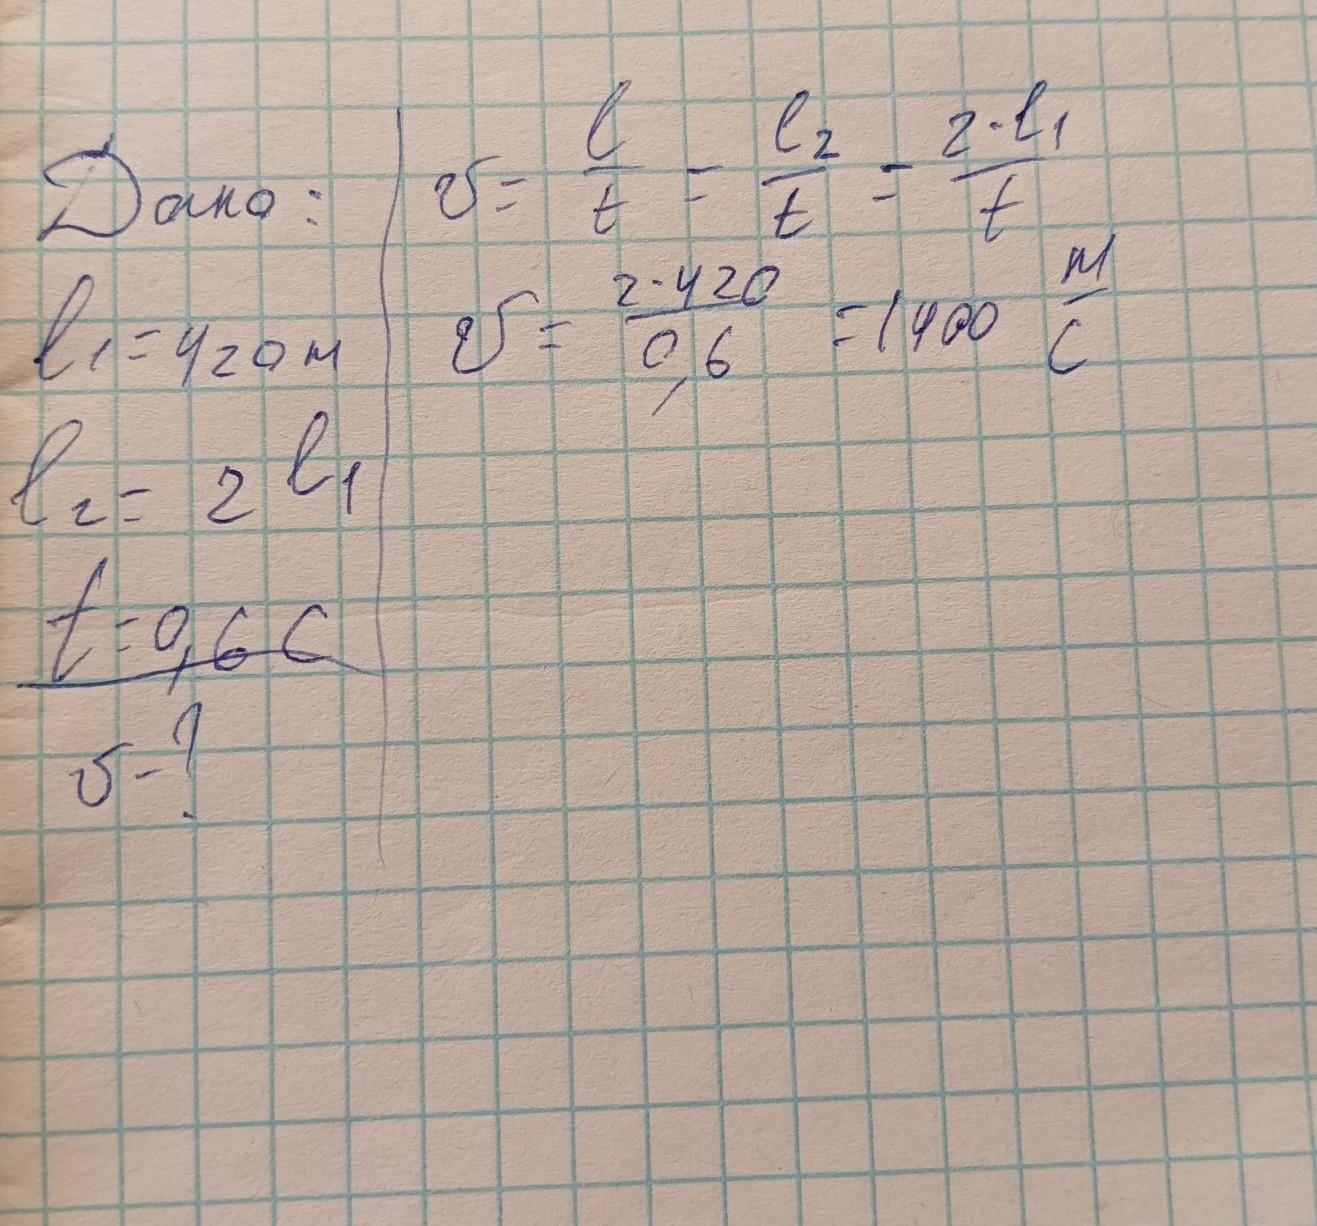 Дано:
l₁ = 420 м
l₂ = 2 l₁
t = 0,6 с
v - ?
v = l/t = l₂/t = 2·l₁/t
v = 2·420/0,6 = 1400 м/с